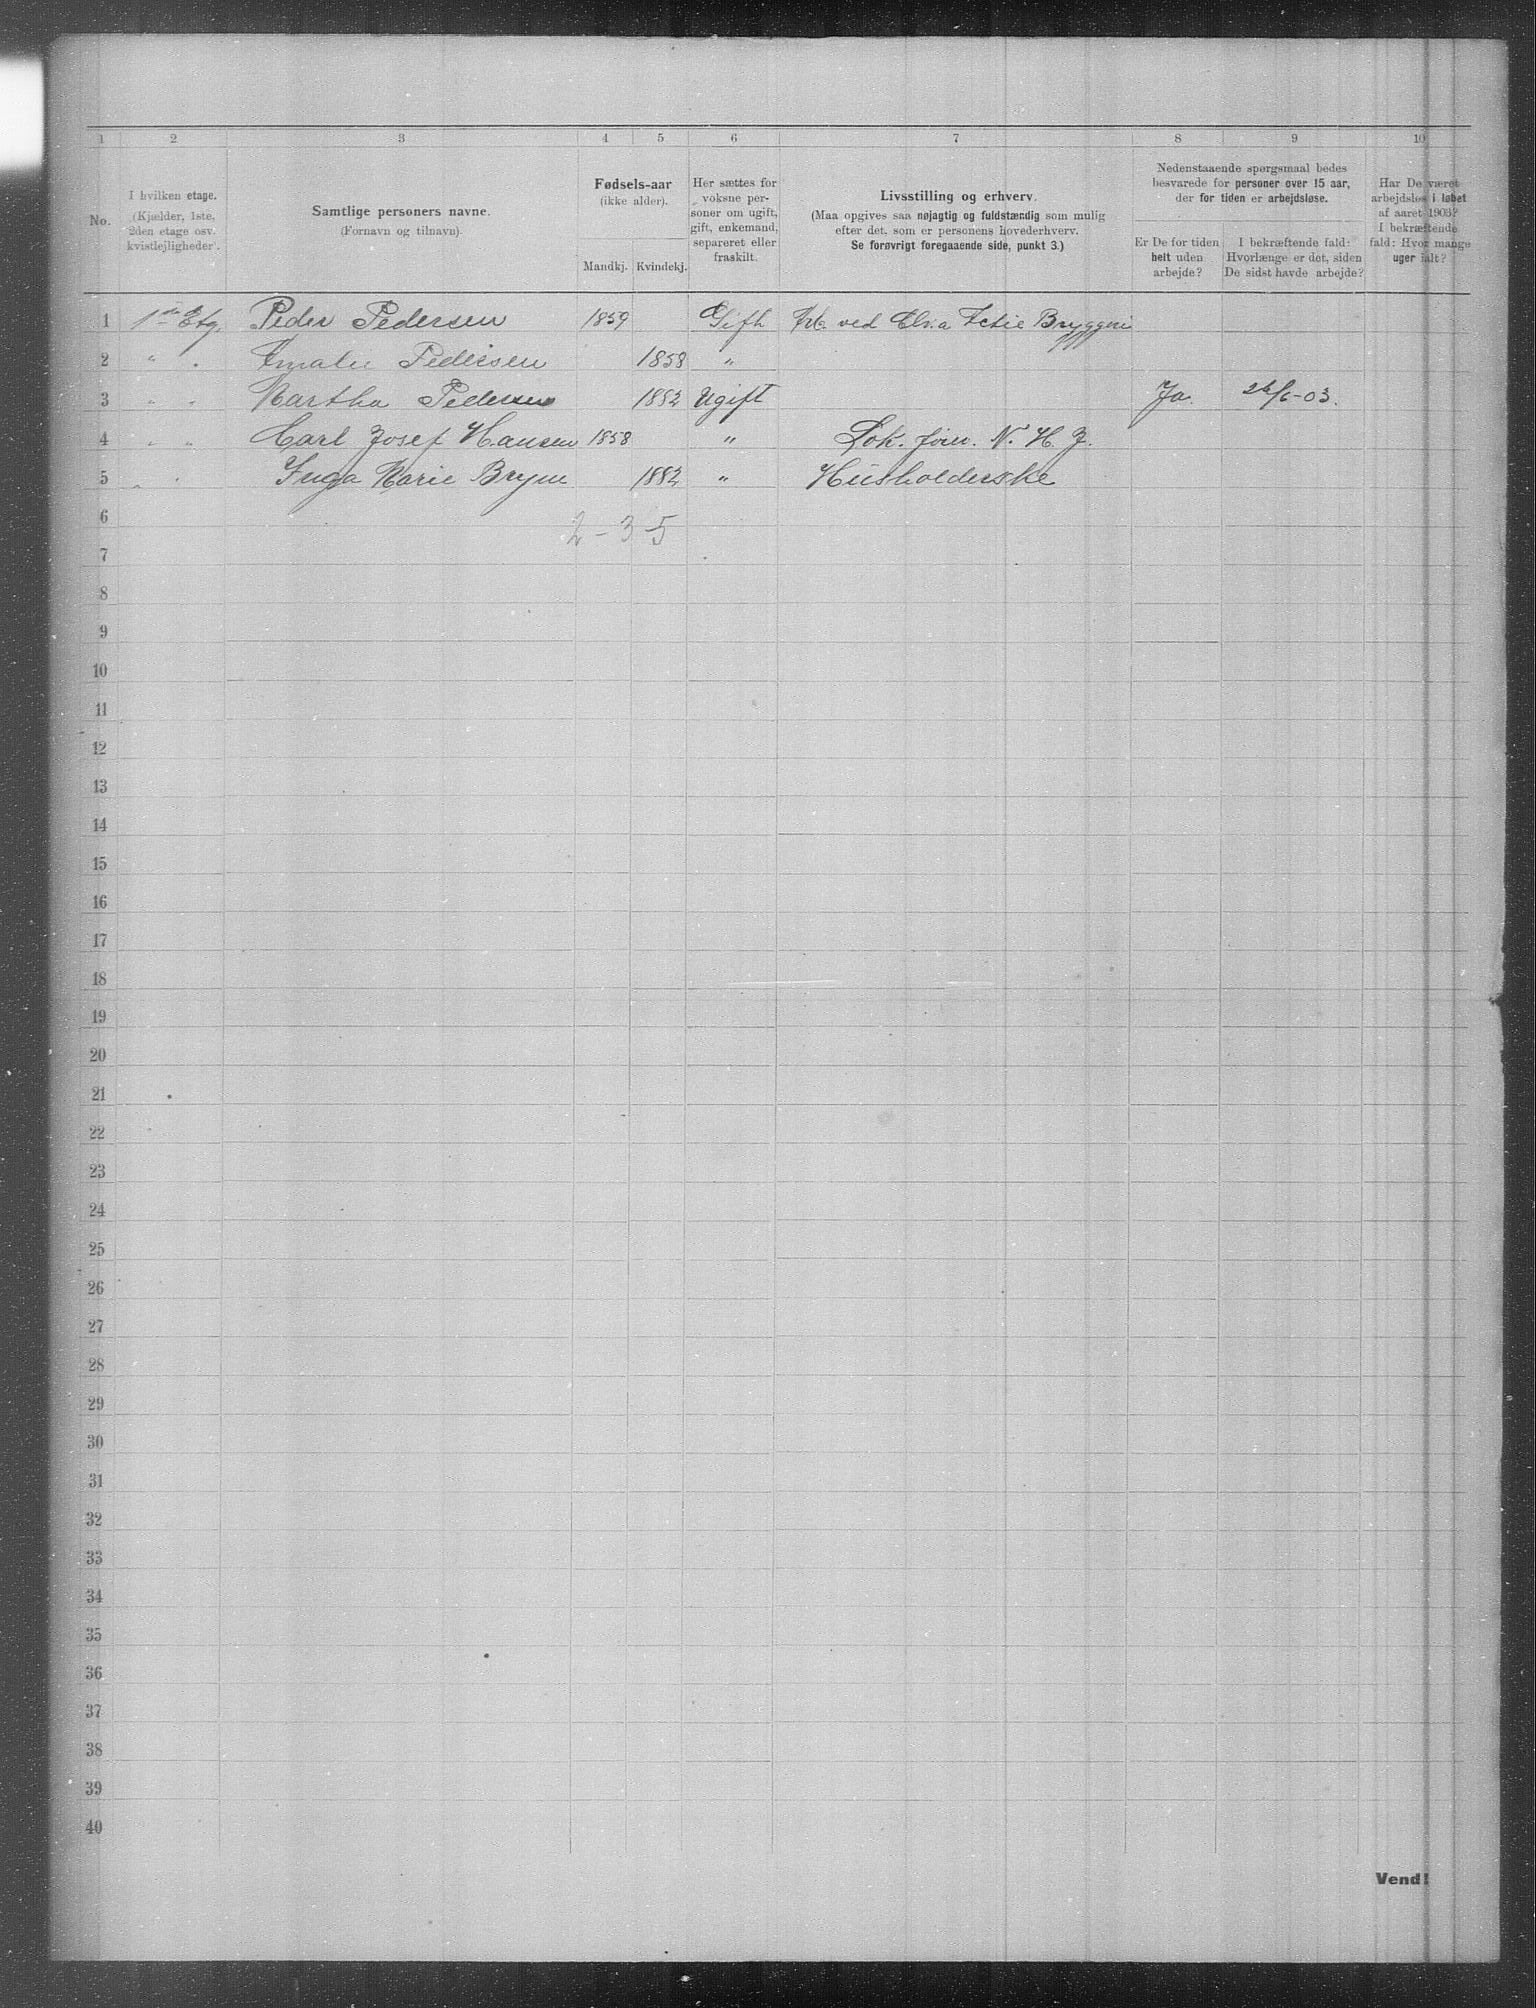 1 2 3 4 5 6 7 8 9 10
No.
I hvilken etage.
(Kjælder, 1ste,
2den etage osv.
kvistlejligheder.
Samtlige personers navne.
(Fornavn og tilnavn).
Fødsels-aar
(ikke alder).
Mandkj. Kvindekj.
Her sættes for
voksne per-
soner om ugift,
gift, enkemand,
separeret eller
fraskilt.
Livsstilling og erhverv.
(Maa opgives saa nøjagtig og fuldstændig som mulig
efter det, som er personens hovederhverv.
Se forøvrigt foregaaende side, punkt 3.)
Nedenstaaende spørgsmaal bedes
besvarede for personer over 15 aar,
der for tiden er arbejdsløse.
Er De for tiden
helt uden
arbejde?
I bekræftende fald:
Hvorlænge er det, siden
De sidst havde arbejde?
Har De været
arbejdsløs i løbet
af aaret 1903?
I bekræftende
fald: Hvor mange
uger ialt?
1 1ste Etg. Peder Pedersen 1859 Gift Arb. ved Chr.a Actie Bryggeri
2 " . Amalie Pedersen 1858 "
3 " " Martha Pedersen 1882 Ugift Ja. 26/6-03.
4 " " Carl Josef Hansen 1858 " Lok. N. H. J.
5 " " Inga Marie Brynn 1882 " Husholderske
6
2 - 3 5
7
8
9
10
11
12
13
14
15
16
17
18
19
20
21
22
23
24
25
26
27
28
29
30
31
32
33
34
35
36
37
38
39
40
Vend!